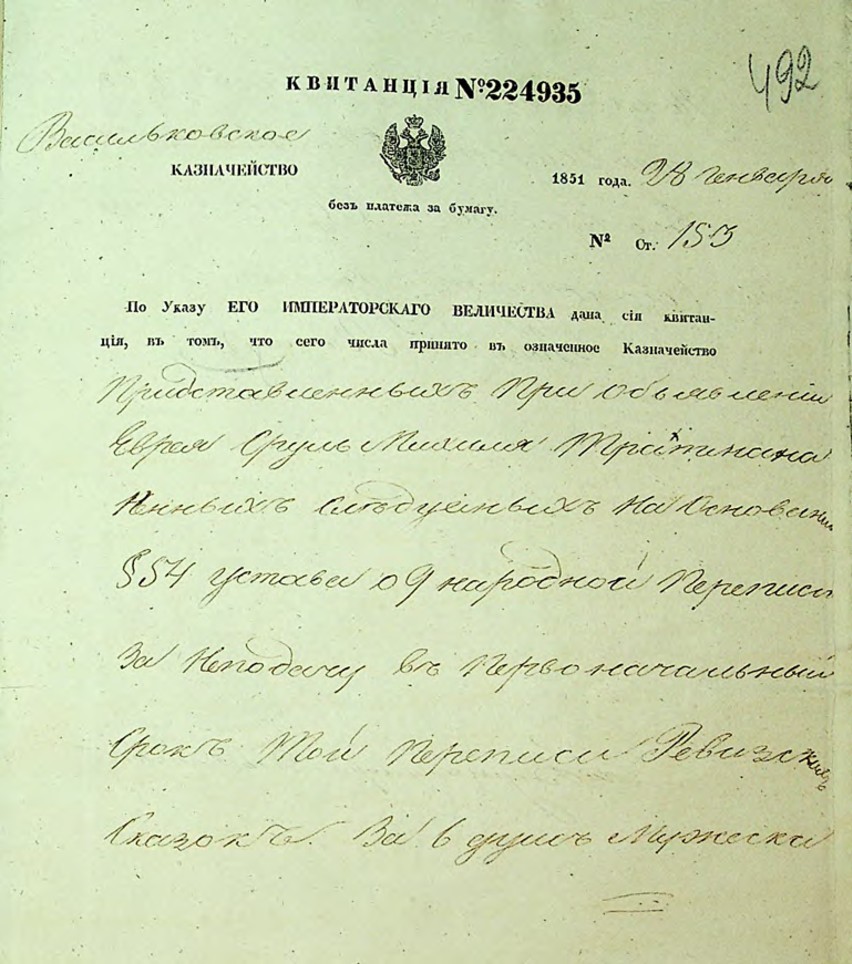 КВИТАНЦІЯ №224935
492
Васильковское
КАЗНАЧЕЙСТВО
1851 года. 28 Генваря
безъ платежа за бумагу.
№ Ст. 153
По Указу ЕГО ИМПЕРАТОРСКАГО ВЕЛИЧЕСТВА дана сія квитан-
ція, въ томъ, что сего числа принято въ означенное Казначейство
Придставленныхъ При объявленіи
Еврея Сруль Михиля
Следуемыхъ На Основании
§ 54 устава о 9 народной Переписи
За Неподачу въ Первоначальный
Срокъ Той Переписи Ревизскихъ
Сказокъ. За 6 душъ Мужеска